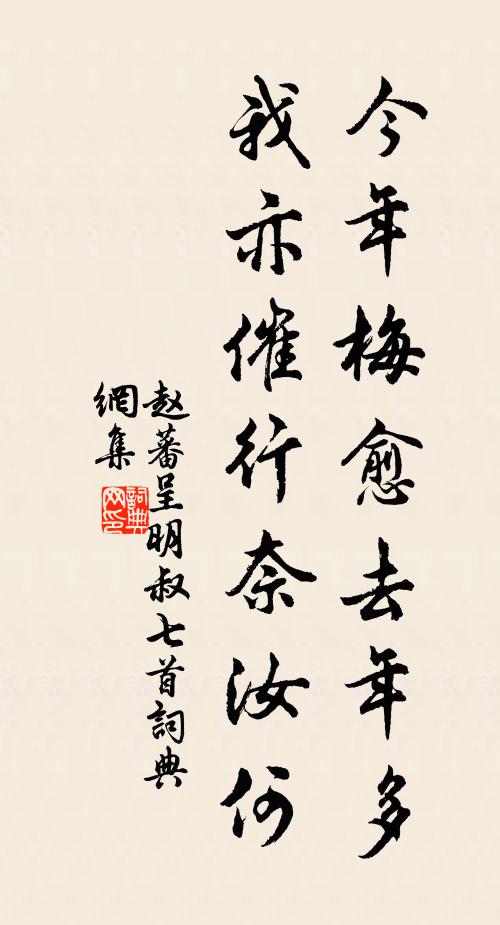 今年梅愈去年多
我亦催行奈汝何
赵蕃呈明叔七首詞典
網集
詞典
网印